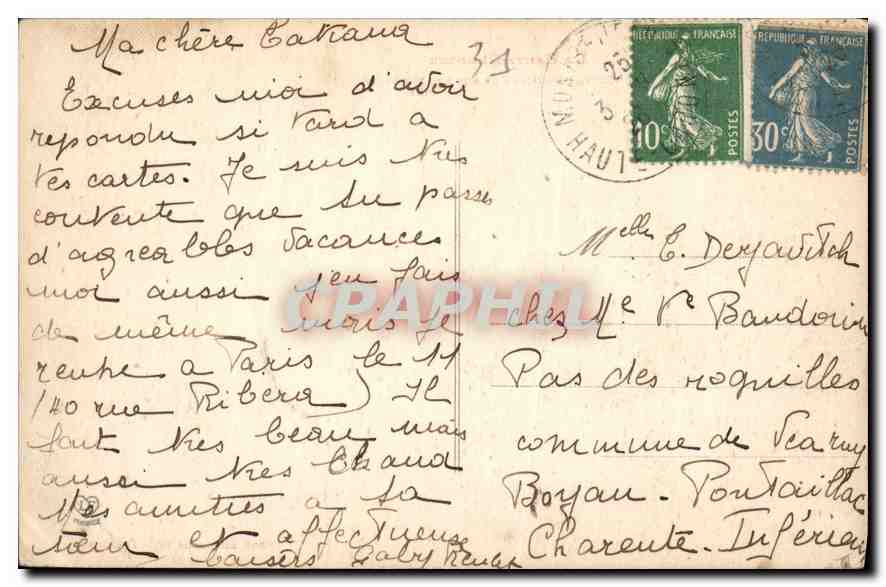 Ma chère Takana
Excuses moi d'avoir
repondu si tard a
tes cartes. Je suis tres
contente que tu passes
d'agreables vacances
moi aussi j'en fais
de même mais je
rentre a Paris le 11
(40 rue Ribera) Il
fait tres beau mais
aussi tres chaud
Mes amities a ta
sœur et affectueuse
baisers Gaby
31
HAUTE
REPUBLIQUE FRANÇAISE
10c POSTES
REPUBLIQUE FRANÇAISE
30c POSTES
CPAPHIL
Melle E. Derjavitch
chez Me Ve Baudouin
Pas des roquilles
commune de
Boyau - Pontaillac
Charente-Inférieure